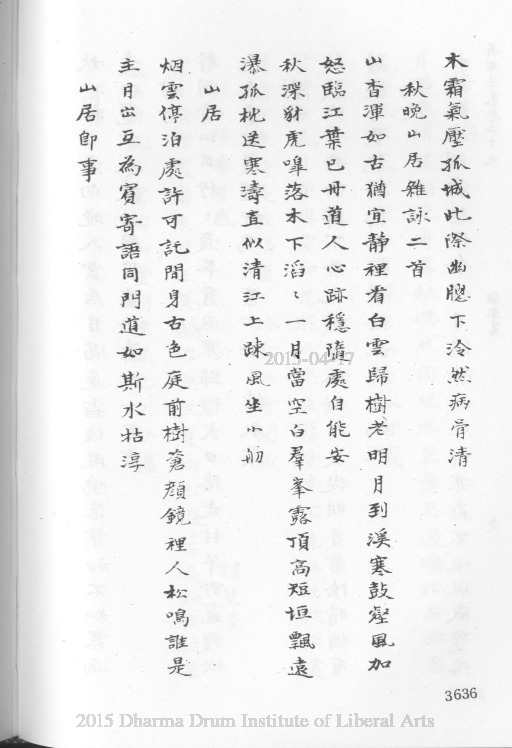 木霜氣壓孤城此際幽牕下泠然病骨清
秋晚山居雜詠二首
山杳渾如古猶宜静裡看白雲歸樹老明月到溪寒鼓壑風加
怒臨江葉已丹道人心跡穩隨處自能安
秋深豺虎嘷落木下滔〻一月當空白羣峯露頂高短垣飄遠
瀑孤枕送寒濤直似清江上踈風坐小舠
山居
烟雲停泊處許可託閒身古色庭前樹蒼顔鏡裡人松鳴誰是
主月出互為賓寄語同門道如斯水牯淳
山居即事
3636
2015-04-17
2015 Dharma Drum Institute of Liberal Arts